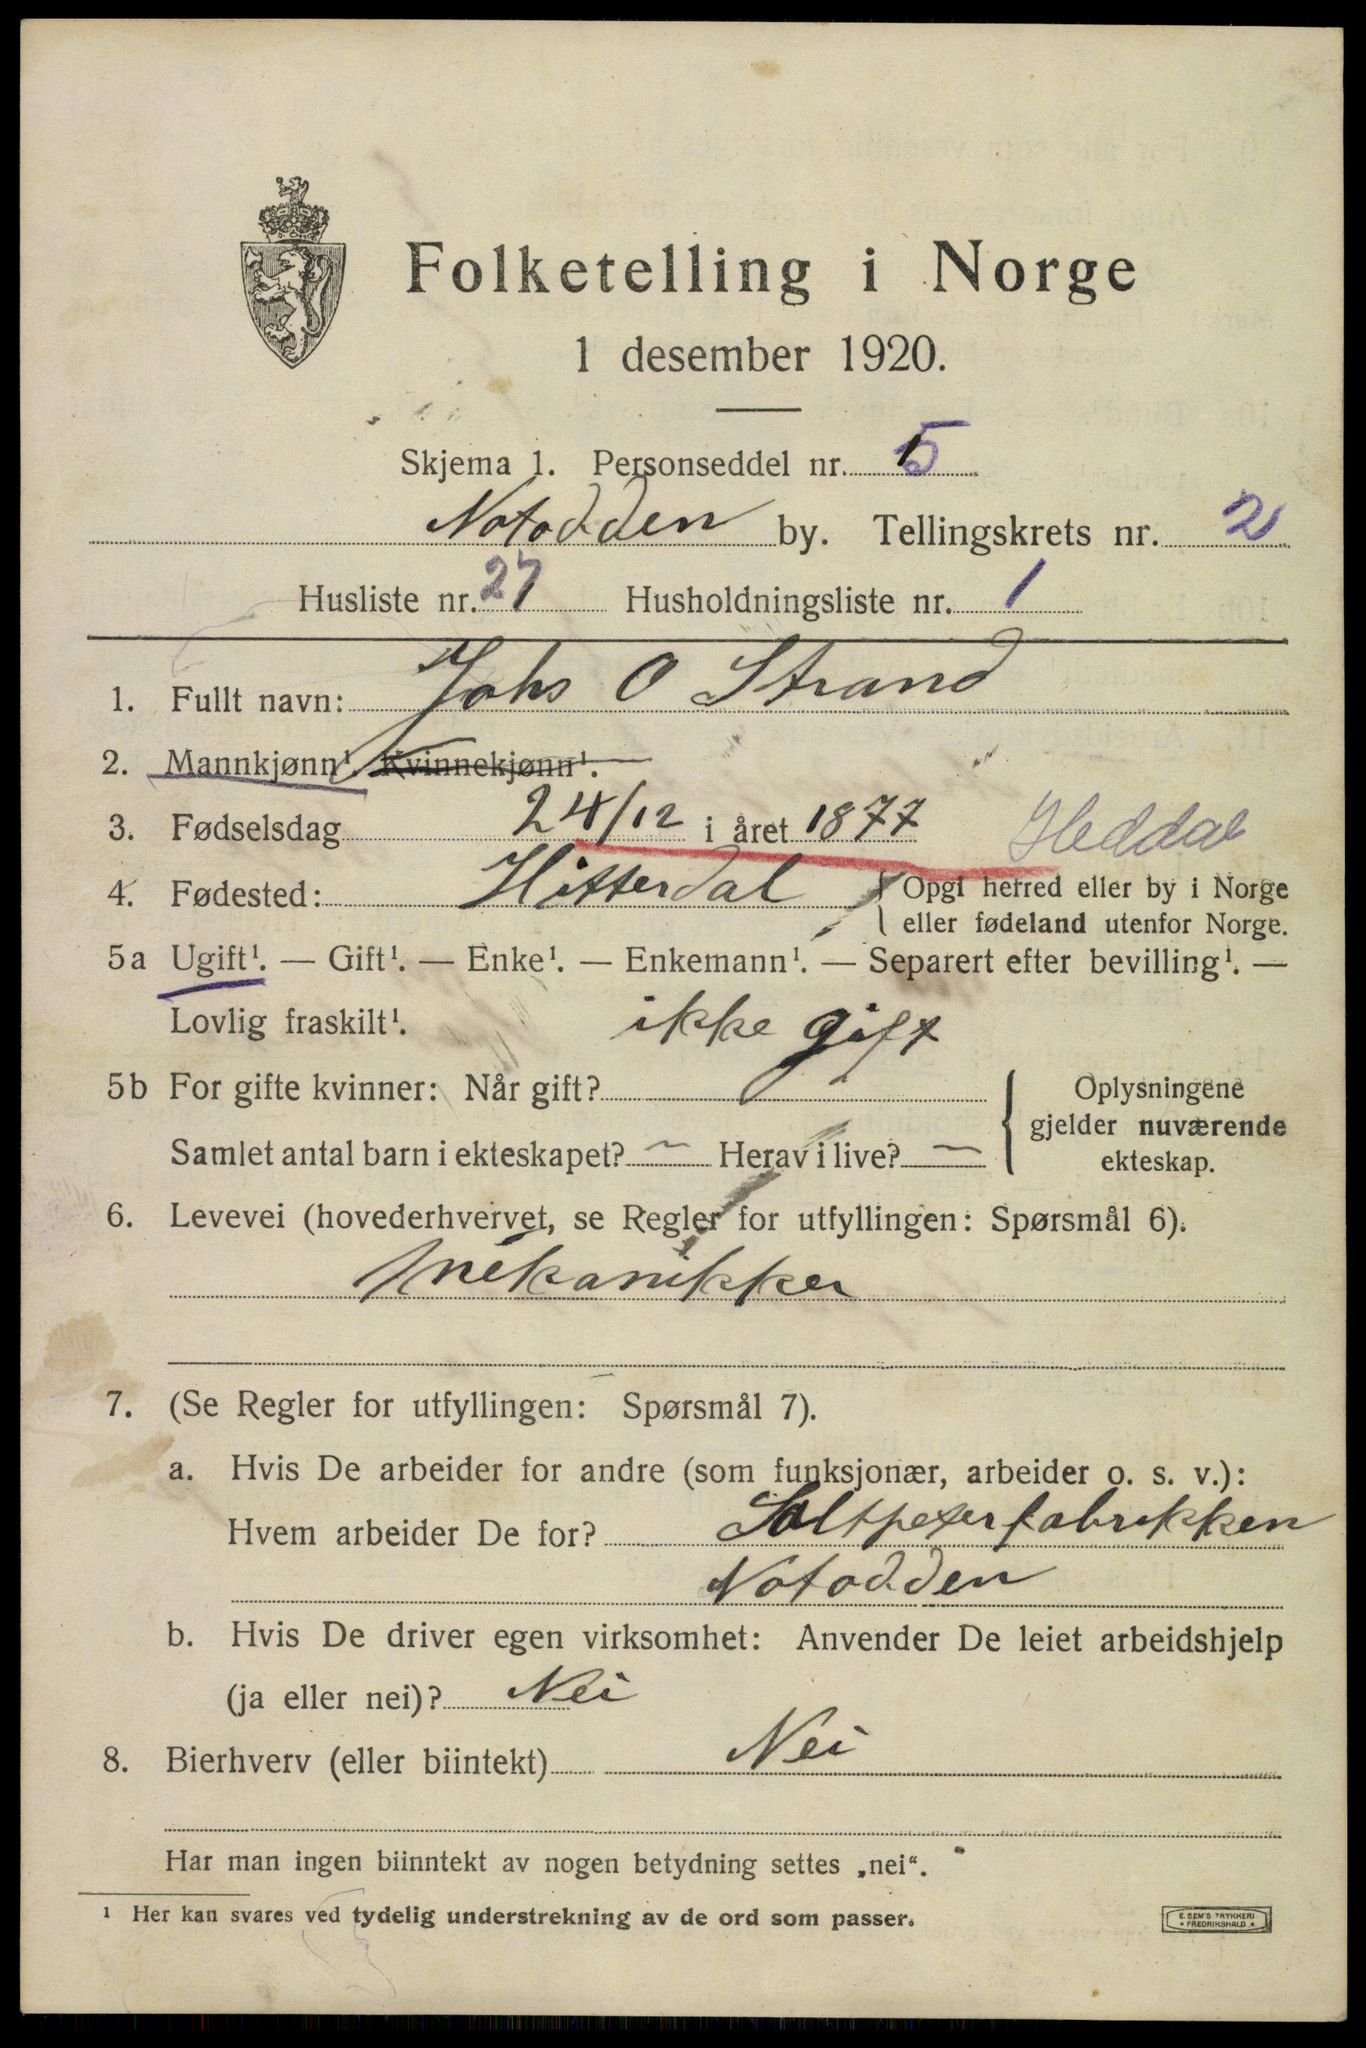 Folketelling i Norge
1 desember 1920.
Skjema 1. Personseddel nr. 5
Notodden by. Tellingskrets nr. 2
Husliste nr. 27 Husholdningsliste nr. 1
1. Fullt navn: Johs O Strand
2. Mannkjønn¹. Kvinnekjønn¹.
3. Fødselsdag 24/12 i året 1877 Heddal
4. Fødested: Hitterdal Opgi herred eller by i Norge
eller fødeland utenfor Norge.
5a Ugift¹. — Gift¹. — Enke¹. — Enkemann¹. — Separert efter bevilling¹. —
Lovlig fraskilt¹. ikke gift
5b For gifte kvinner: Når gift? Oplysningene
gjelder nuværende
Samlet antal barn i ekteskapet? — Herav i live? —
ekteskap.
6. Levevei (hovederhvervet, se Regler for utfyllingen: Spørsmål 6).
Mekanikker
7. (Se Regler for utfyllingen: Spørsmål 7).
a. Hvis De arbeider for andre (som funksjonær, arbeider o. s. v.):
Hvem arbeider De for? Saltpeterfabrikken
Notodden
b. Hvis De driver egen virksomhet: Anvender De leiet arbeidshjelp
(ja eller nei)? Nei
8. Bierhverv (eller biintekt) Nei
Har man ingen biinntekt av nogen betydning settes „nei“.
¹ Her kan svares ved tydelig understrekning av de ord som passer.
E. SEM'S TRYKKERI
FREDRIKSHALD